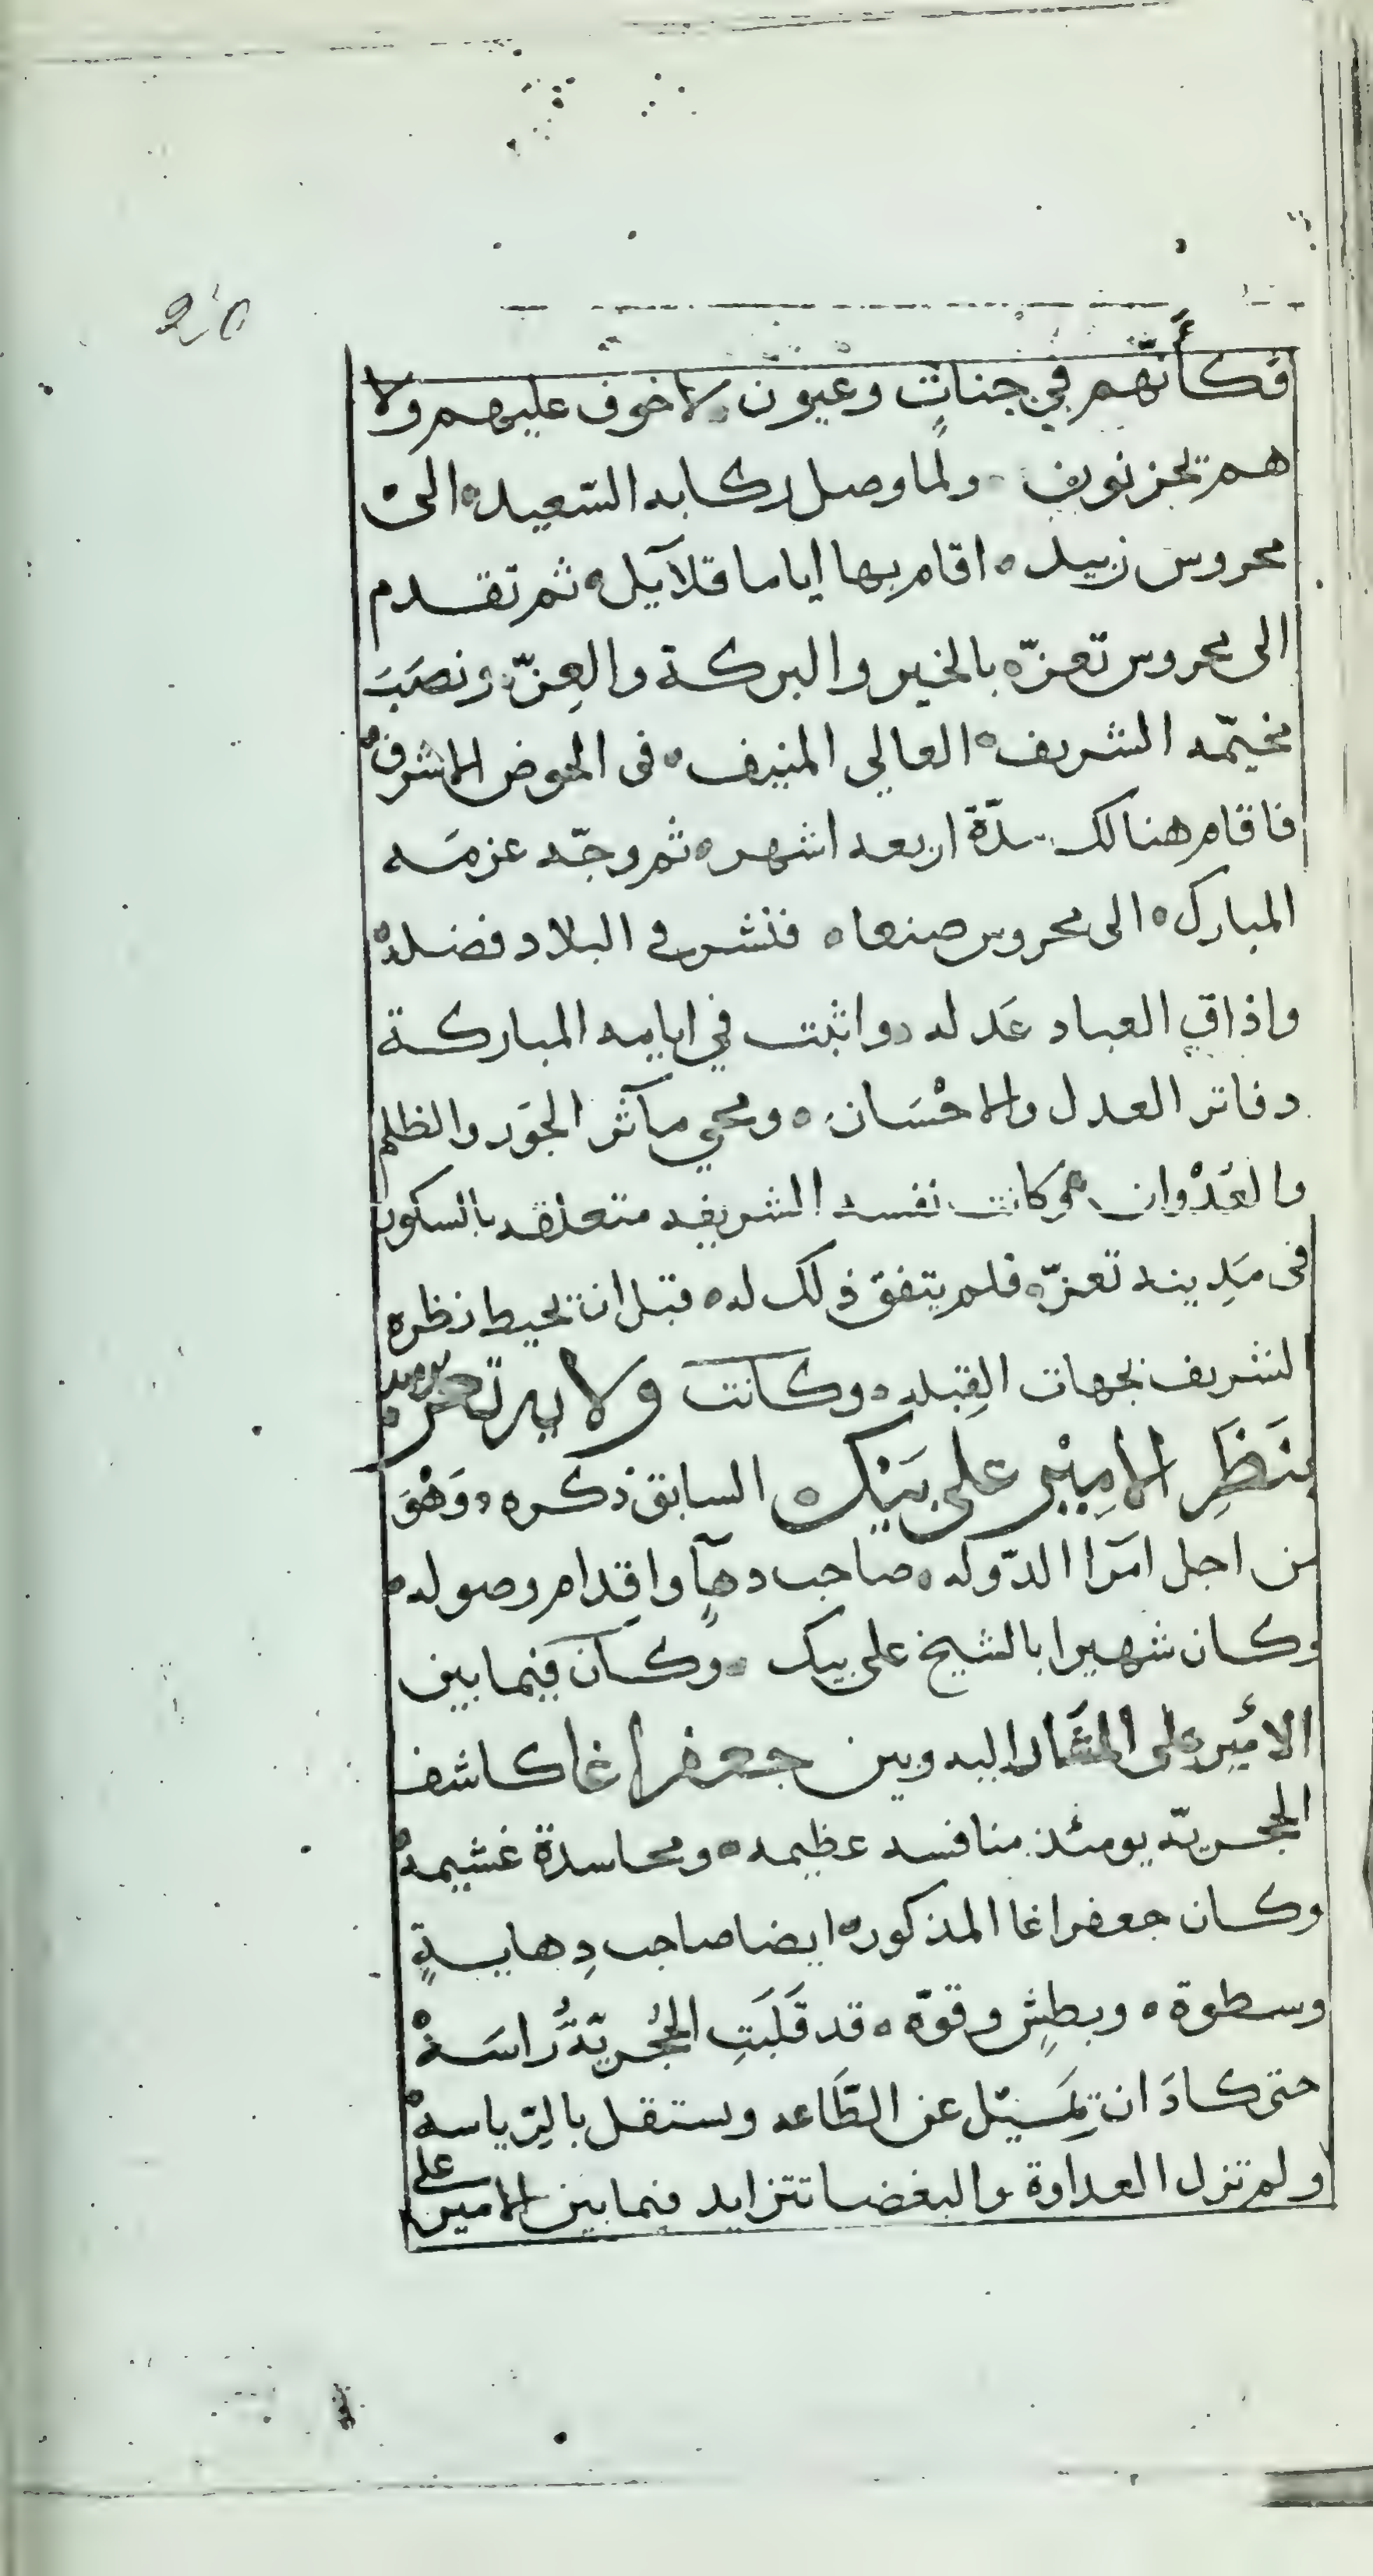 20
فكأنّهم في جناتٍ وعيون لا خوف عليهم ولا
هم يحزنون ولما وصل ركابه السّعيد ه الى
محروس زبيد ه اقام بها اياما قلآيل ه ثم تقدم
الى محروس تعزّ ه بالخير والبركة والعِزّ ه ونصَبَ
مخيّمه الشريف ه العالي المنيف ه فى الحوض الاشرف ه
فاقام هنالك مدّة اربعه اشهر ه ثم وجّه عزمَه
المبارك ه الى محروس صنعا ه فنشر في البلاد فضله ه
واذاق العباد عَدله ه واثبت في ايامه المباركة
دفاتر العدل والاحْسَان ه ومحي مآثر الجَور والظلم
والعُدْوان ه وكانت نفسه الشريفه متعلقه بالسكون
فى مَدِينه تعزّ ه فلم يتفق ذلك له ه قبل ان يحيط نظره
لشريف بجهات القِبله ه وكانت ولايه تعز
بنَظَرِ الامِيْر على بَيْك ه السابق ذكره ه وَهْوَ
من اجل امَرا الدّوله ه صاحب دهآٍ واقِدام وصوله ه
وكان شهيرا بالشيخ على بيك ه وكان فيما بين
الامِير على المشَار اليه وبين جعفر اغا كاشف
الحجريّه يومئذ منافسه عظيمه ه ومحاسدة غشيمه ه
وكان جعفر اغا المذكور ه ايضا صاحب دِهايةٍ
وسطوة ه وبطشٍ وقوّة ه قد قَلَبَتِ الحُجريّةُ رُاسَهْ ه
حتى كادَ ان يَمِيْل عن الطّاعه ويستقل بالرّياسه ه
ولم تزل العداوة والبغضا تتزايد فيما بين الامير على